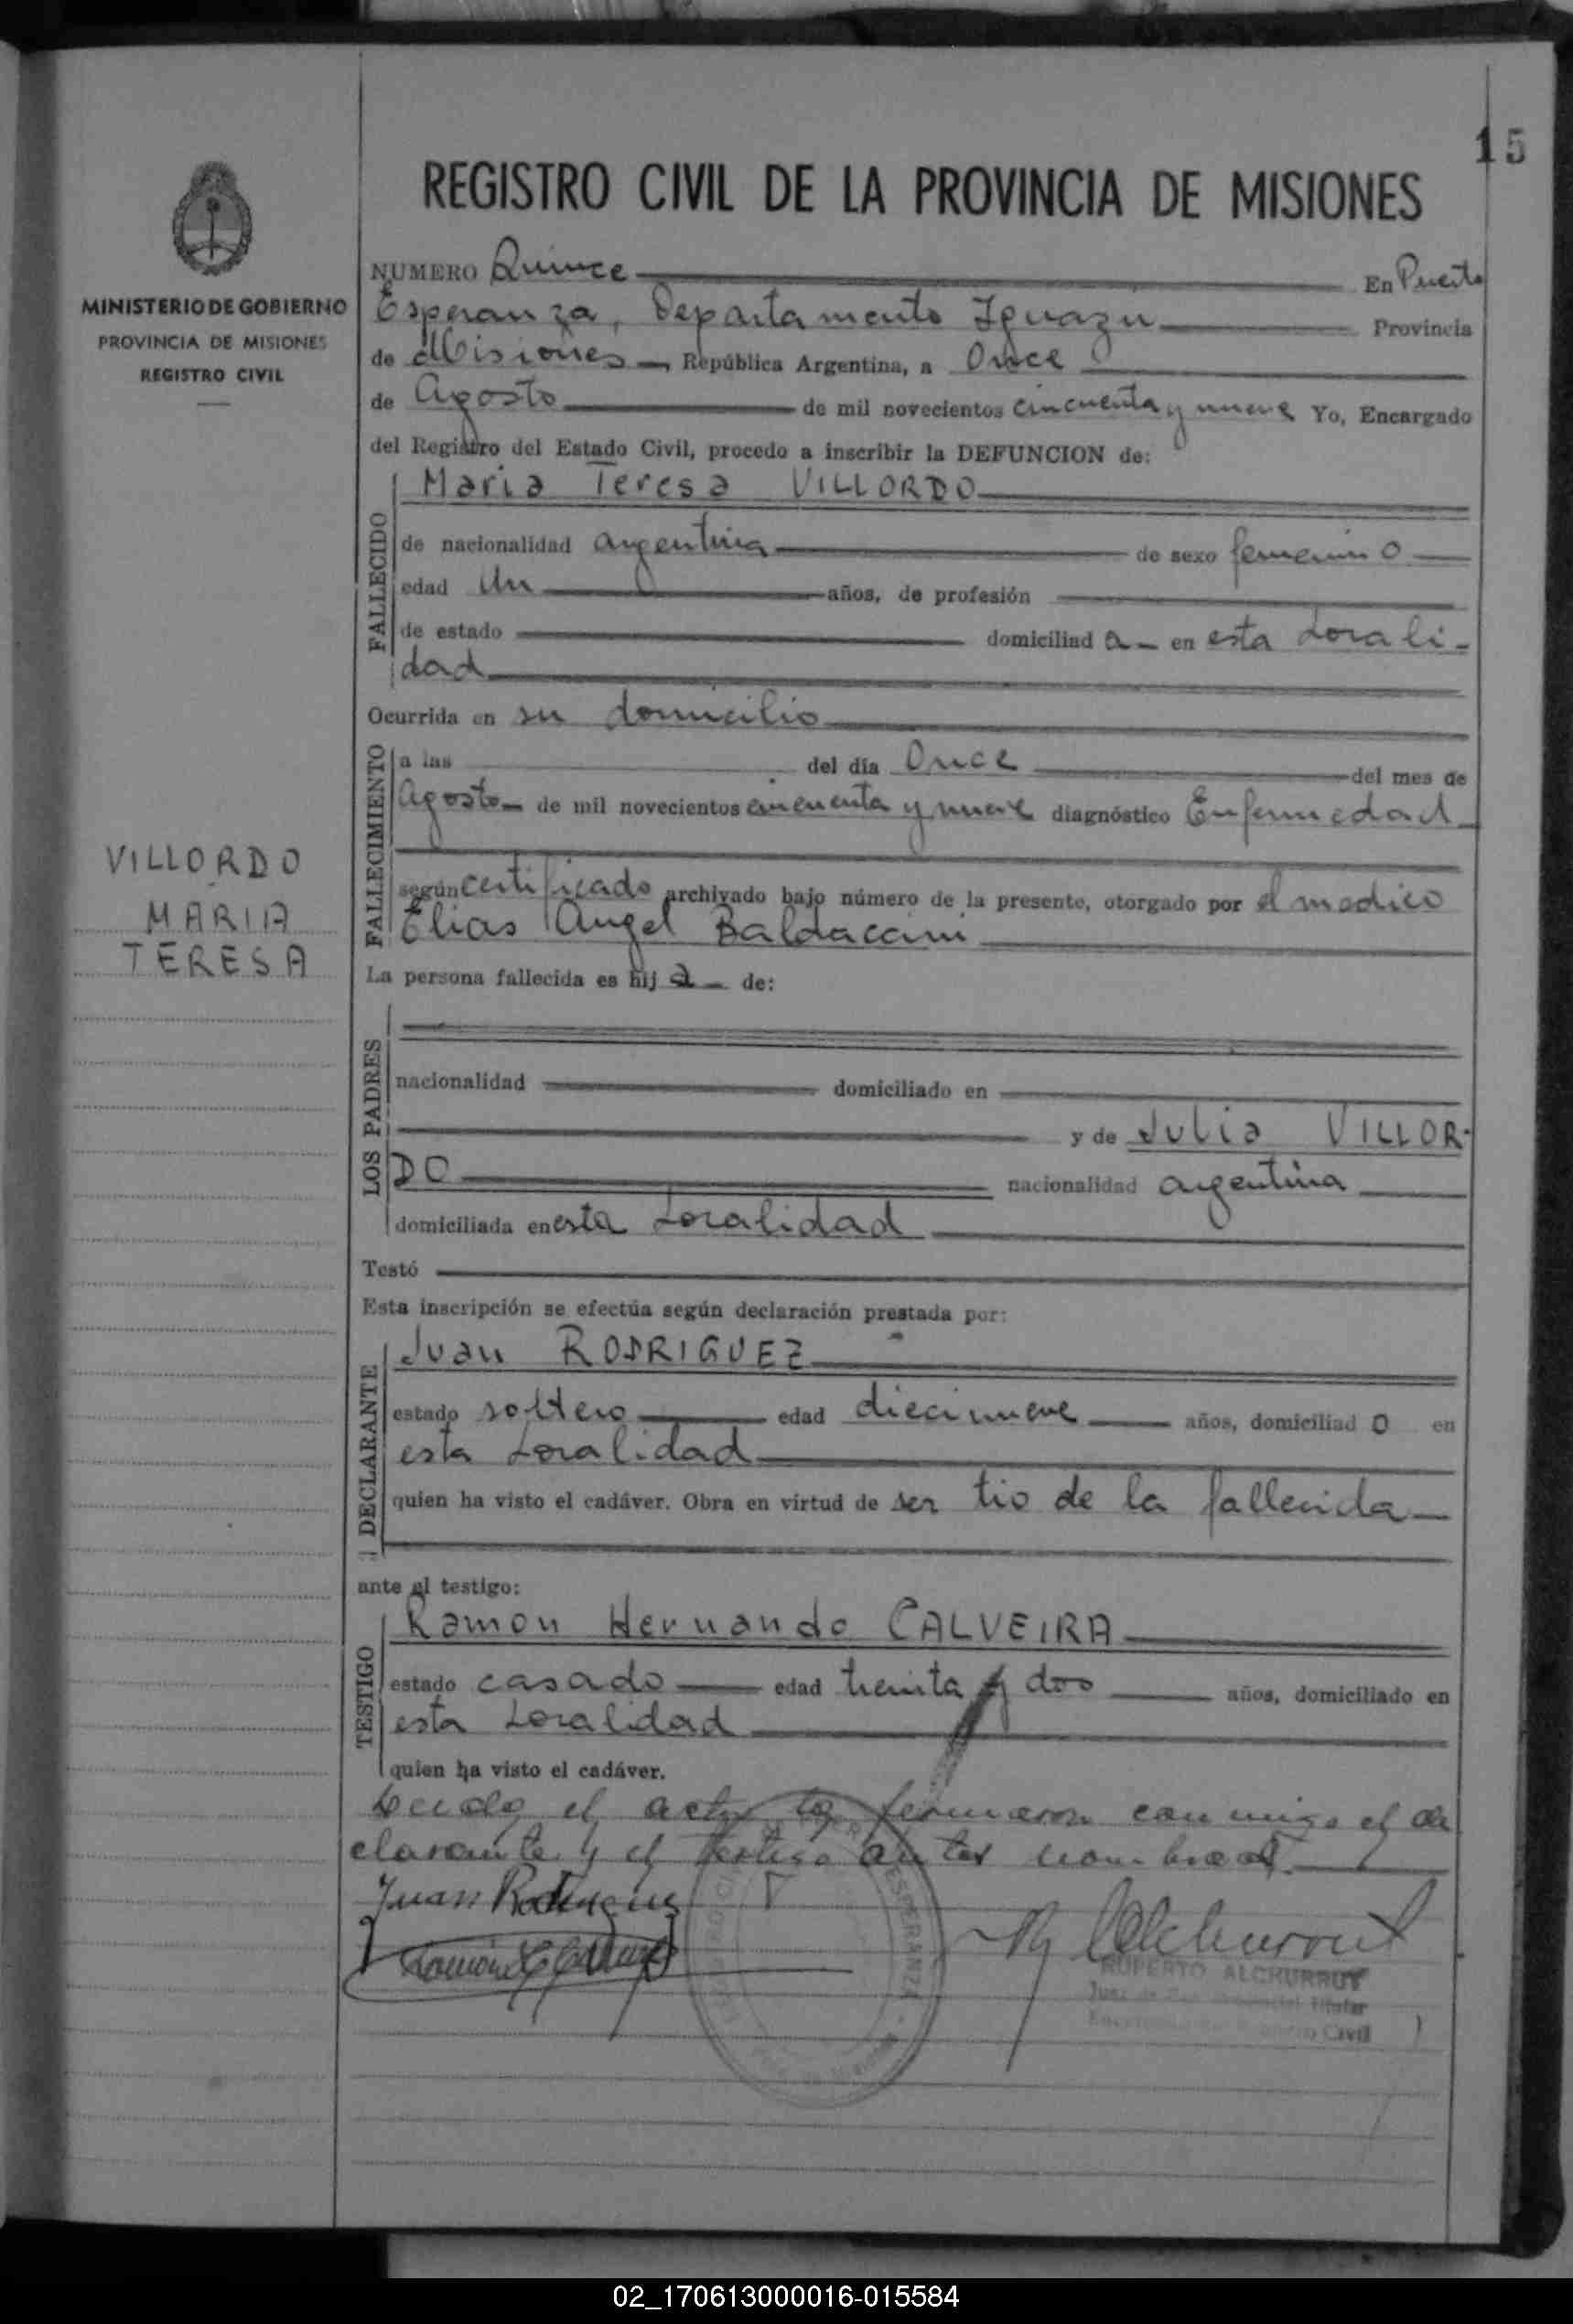 15
REGISTRO CIVIL DE LA PROVINCIA DE MISIONES
MINISTERIO DE GOBIERNO
PROVINCIA DE MISIONES
REGISTRO CIVIL
NUMERO Quince En Puerto
Esperanza, Departamento Iguazu Provincia
de Misiones República Argentina, a Once
de Agosto de mil novecientos cincuenta y nueve Yo, Encargado
del Registro del Estado Civil, procedo a inscribir la DEFUNCION de:
FALLECIDO
Maria Teresa VILLORDO
de nacionalidad argentina de sexo femenino
edad Un años, de profesión
de estado domiciliad a en esta Locali-
dad
Ocurrida en su domicilio
FALLECIMIENTO
a las del día Once del mes de
Agosto de mil novecientos cincuenta y nueve diagnóstico Enfermedad
según certificado archivado bajo número de la presente, otorgado por el medico
Elias Angel Baldaccini
VILLORDO
MARIA
TERESA
La persona fallecida es hij a de:
LOS PADRES
nacionalidad domiciliado en
y de Julia VILLOR-
DO nacionalidad argentina
domiciliada en esta Localidad
Testó
Esta inscripción se efectúa según declaración prestada por:
DECLARANTE
Juan RODRIGUEZ
estado soltero edad diecinueve años, domiciliad o en
esta Localidad
quien ha visto el cadáver. Obra en virtud de ser tio de la fallecida
ante el testigo:
TESTIGO
Ramon Hernando CALVEIRA
estado casado edad treinta y dos años, domiciliado en
esta Localidad
quien ha visto el cadáver.
Leida el acta la firmaron conmigo el de
clarante y el testigo antes nombrad
Juan Rodriguez
RUPERTO ALCHURRUT
Juez de Paz Titular
Civil
ESPERANZA
02_170613000016-015584